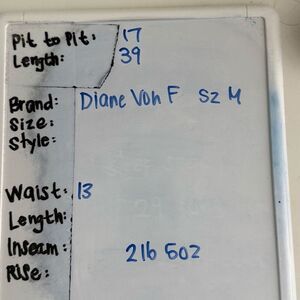 Pit to Pit: 17
Length: 39
Brand: Diane Von F Sz M
Size:
Style:
Waist: 13
Length:
Inseam: 2lb 5oz
Rise: